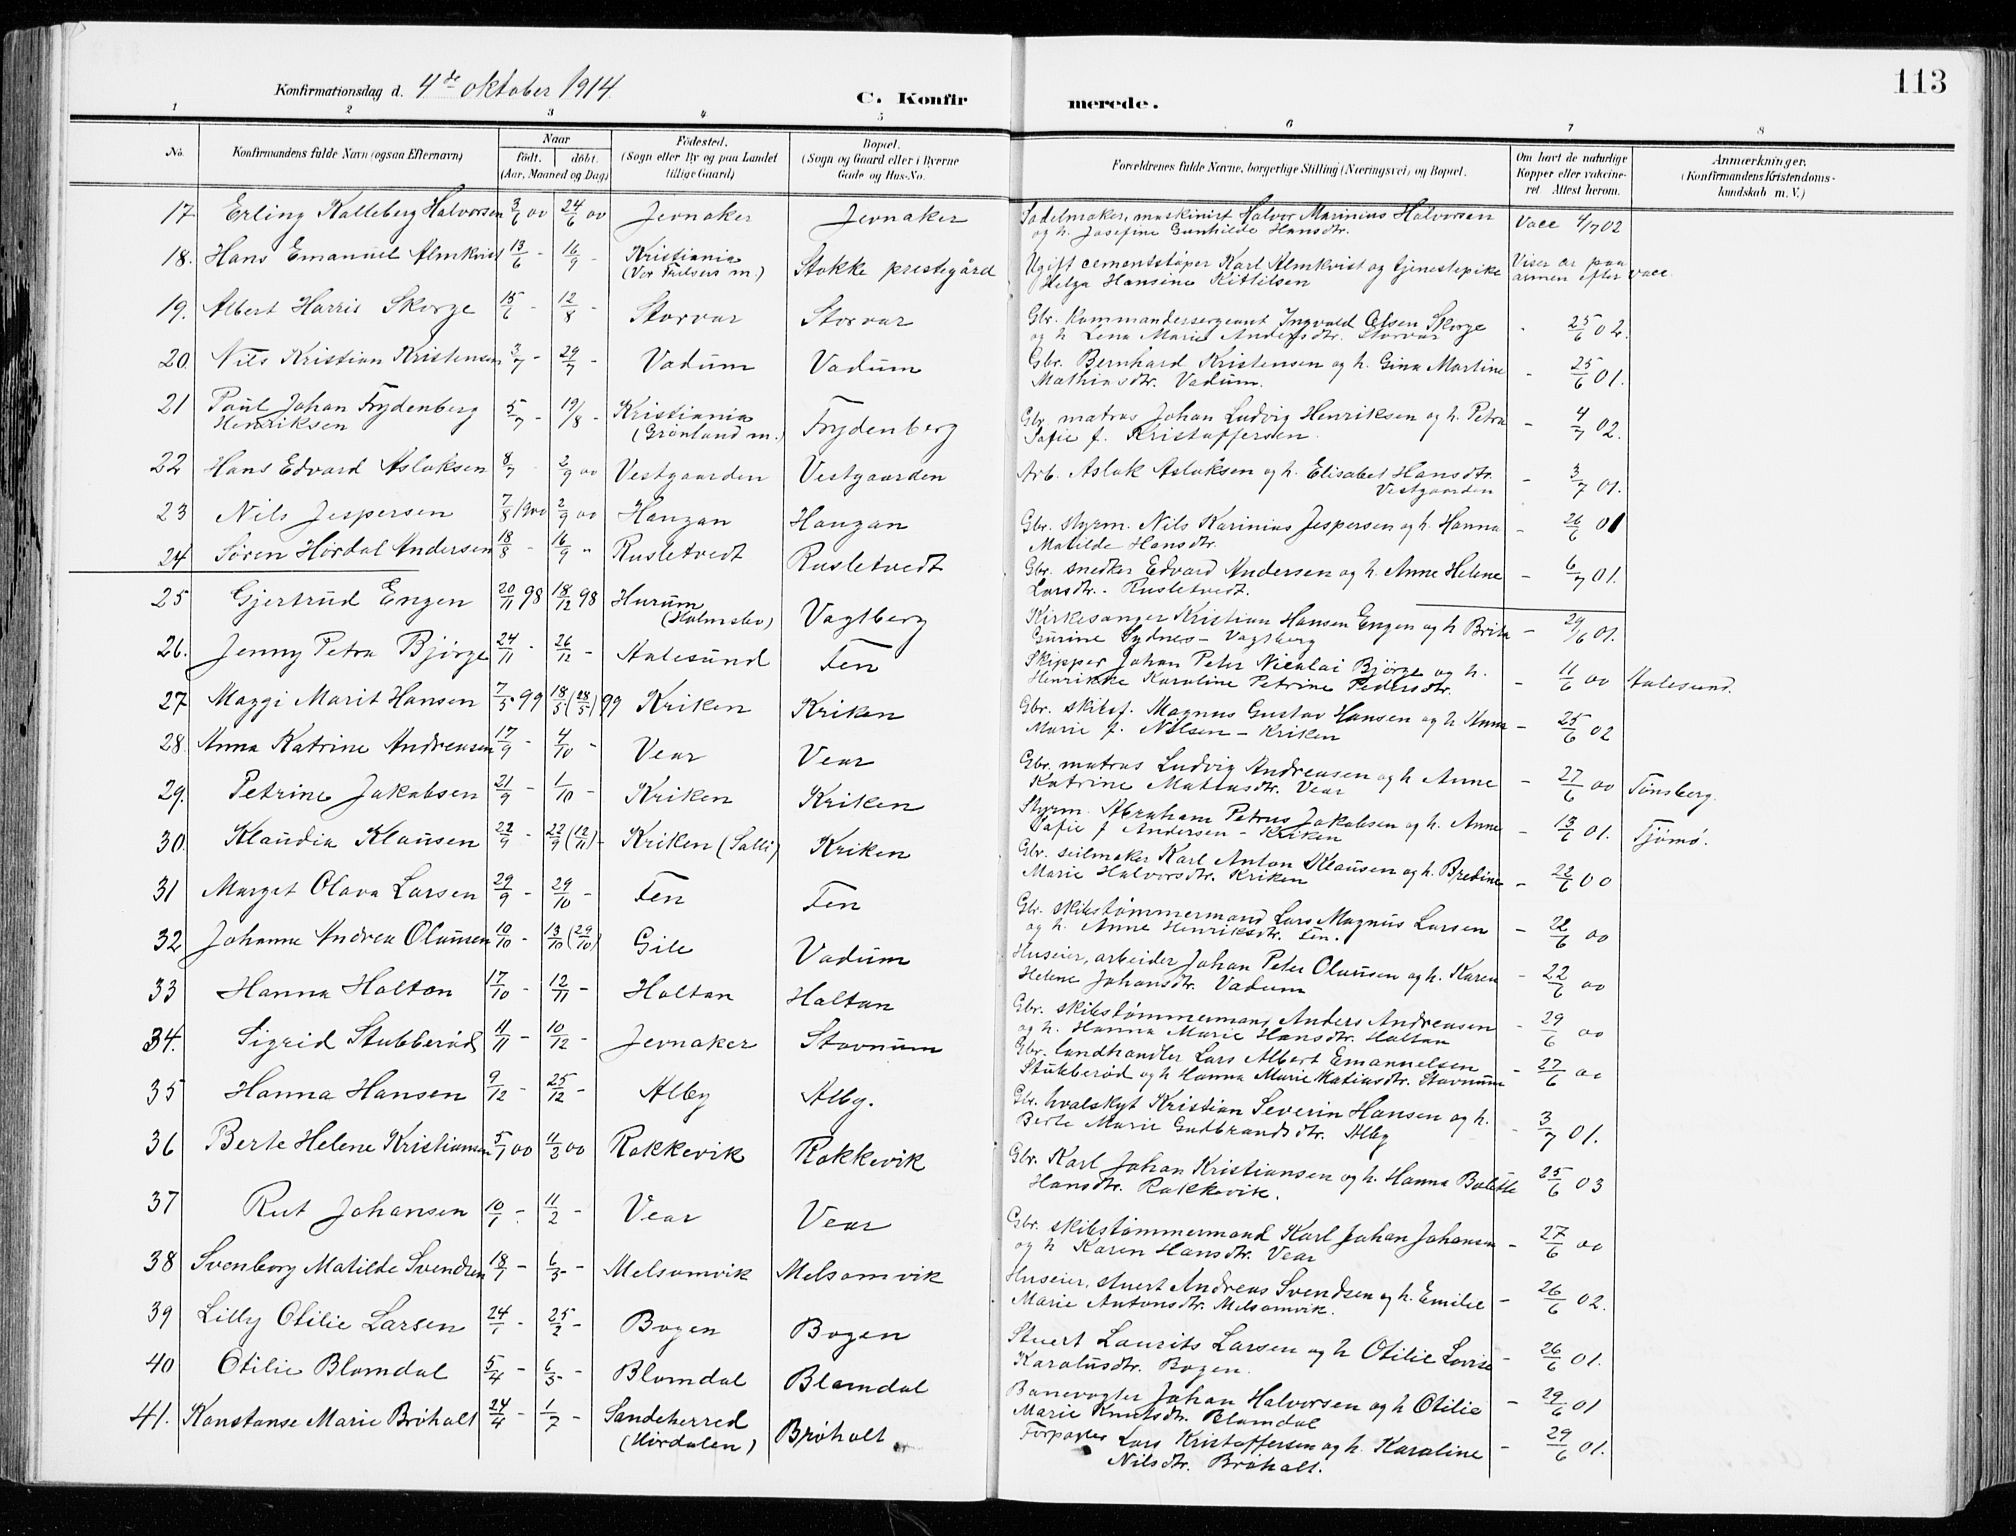 113
Konfirmationsdag d. 4de oktober 1914
C. Konfirmerede.
1 2 3 4 5 6 7 8
No. Konfirmandens fulde Navn (ogsaa Efternavn) Naar født. døbt. (Aar, Maaned og Dag) Fødested. (Sogn eller By og paa Landet tillige Gaard) Bopæl. (Sogn og Gaard eller i Byerne Gade og Hus-No. Forældrenes fulde Navne, borgerlige Stilling (Næringsvei) og Bopæl. Om havt de naturlige Kopper eller vaccineret. Attest herom. Anmærkninger. (Konfirmandens Kristendomskundskab m. V.)
17 Erling Kalleberg Halvorsen 3/6 00 24/6 00 Jevnaker Jevnaker Sadelmaker, maskinist Halvor Marinius Halvorsen Vacc 4/7 02
og h. Josefine Gunhilde Hansdtr.
18. Hans Emanuel Almkvist 13/6 - 16/9 - Kristiania (Vor Frelsers m.) Stokke prestegård Ugift cementstøper Karl Almkvist og tjenestepike Viser ar paa
Helga Hansine Kittilsen armen efter vacc.
19. Albert Harris Skorge 15/6 - 12/8 - Storvar Storvar Gbr. Kommandersergeant Ingvald Olsen Skorge - 25/6 02.
og h Lena Marie Andersdtr. Storvar
20. Nils Kristian Kristensen 3/7 - 29/7 - Vadum Vadum Gbr. Bernhard Kristensen og h. Gina Martine - 25/6 01.
Mathiasdtr. Vadum.
21 Paul Johan Frydenberg Henriksen 5/7 - 19/8 - Kristiania (Grønland m.) Frydenberg Gbr. matros Johan Ludvig Henriksen og h. Petra - 4/7 02.
Sofie f. Kristoffersen.
22 Hans Edvard Aslaksen 8/7 - 2/9 00 Vestgaarden Vestgaarden Arb. Aslak Aslaksen og h. Elisabet Hansdtr. - 3/7 01.
Vestgaarden
23 Nils Jespersen 7/8 1900 2/9 00 Haugan Haugan Gbr. styrm. Nils Karinius Jespersen og h. Hanna - 26/6 01
Matilde Hansdtr.
24 Søren Hørdal Andersen 18/8 - 16/9 " Rusletvedt Rusletvedt Gbr. snedker Edvard Andersen og h. Anne Helene - 6/7 01.
Larsdtr. Rusletvedt.
25 Gjertrud Engen 20/11 98 18/12 98 Hurum (Holmsbo) Vagtberg Kirkesanger Kristian Hansen Engen og h Brita - 29/6 01.
Gurine Sydnes - Vagtberg
26. Jenny Petra Bjørge 24/11 - 26/12 - Aalesund Fen Skipper Johan Peter Nicolai Bjørge og h. - 11/6 00 Aalesund.
Henrikke Karoline Petrine Pedersdtr.
27 Maggi Marit Hansen 7/5 99 18/5 (28/5) 99 Kriken Kriken Gbr. skibsf. Magnus Gustav Hansen og h Anna - 25/6 02
Marie f. Nilsen - Kriken
28. Anna Katrine Andreasen 17/9 - 4/10 - Vear Vear Gbr. matros Ludvig Andreasen og h Anne - 27/6 00 Tønsberg.
Katrine Matiasdtr. Vear
29. Petrine Jakobsen 21/9 - 1/10 - Kriken Kriken Styrm. Abraham Petrus Jakobsen og h. Anne - 13/6 01. Tjømø.
Sofie f Andersen - Kriken
30. Klaudia Klausen 22/9 - 22/9 (12/11) - Kriken (Solli) Kriken Gbr. seilmaker Karl Anton Klausen og h. Bredine - 22/6 00
Marie Halvorsdtr. Kriken
31 Marget Olava Larsen 29/9 - 29/10 - Fen Fen Gbr. skibstømmermand Lars Magnus Larsen - 22/6 00
og h. Anne Henriksdtr. Fen.
32 Johanne Andrea Olausen 10/10 - 13/10 (29/10) Gile Vadum Huseier, arbeider Johan Peter Olausen og h. Karen - 22/6 00
Helene Johansdtr. Vadum
33 Hanna Holtan 17/10 - 12/11 - Holtan Holtan Gbr. skibstømmermand Anders Andreasen - 29/6 00
og h. Hanna Marie Hansdtr. Holtan
34. Sigrid Stubberød 11/11 - 10/12 - Jevnaker Stavnum Gbr. landhandler Lars Albert Emanuelsen - 27/6 00
Stubberød og h Hanna Marie Matiasdtr. Stavnum
35 Hanna Hansen 9/12 - 25/12 - Alby Alby. Gbr. hvalskyt Kristian Severin Hansen og h. - 3/7 01.
Berte Marie Gudbrandsdtr. Alby
36 Berte Helene Kristiansen 5/1 00 11/2 00 Rakkevik Rakkevik Gbr. Karl Johan Kristiansen og h. Hanna Bolette 25/6 03
Hansdtr. Rakkevik.
37 Rut Johansen 10/1 - 11/2 - Vear Vear Gbr. skibstømmermand Karl Johan Johansen - 27/6 00
og h Karen Hansdtr. Vear
38 Svenborg Matilde Svendsen 18/1 - 6/3 - Melsomvik Melsomvik Huseier, stuert Andreas Svendsen og h. Emilie - 26/6 02.
Marie Antonsdtr. Melsomvik.
39 Lilly Otilie Larsen 24/1 - 25/2 - Bogen Bogen Stuert Laurits Larsen og h Otilie Lovise - 26/6 01.
Karolusdtr. Bogen.
40 Otilie Blomdal 5/4 - 6/5 - Blomdal Blomdal Banevogter Johan Halvorsen og h Otilie - 29/6 01
Marie Knutsdtr. Blomdal
41. Konstanse Marie Brøholt 24/4 - 1/7 - Sandeherred (Hørdalen) Brøholt Forpagter Lars Kristoffersen og h. Karoline - 29/6 01.
Nilsdtr. Brøholt.